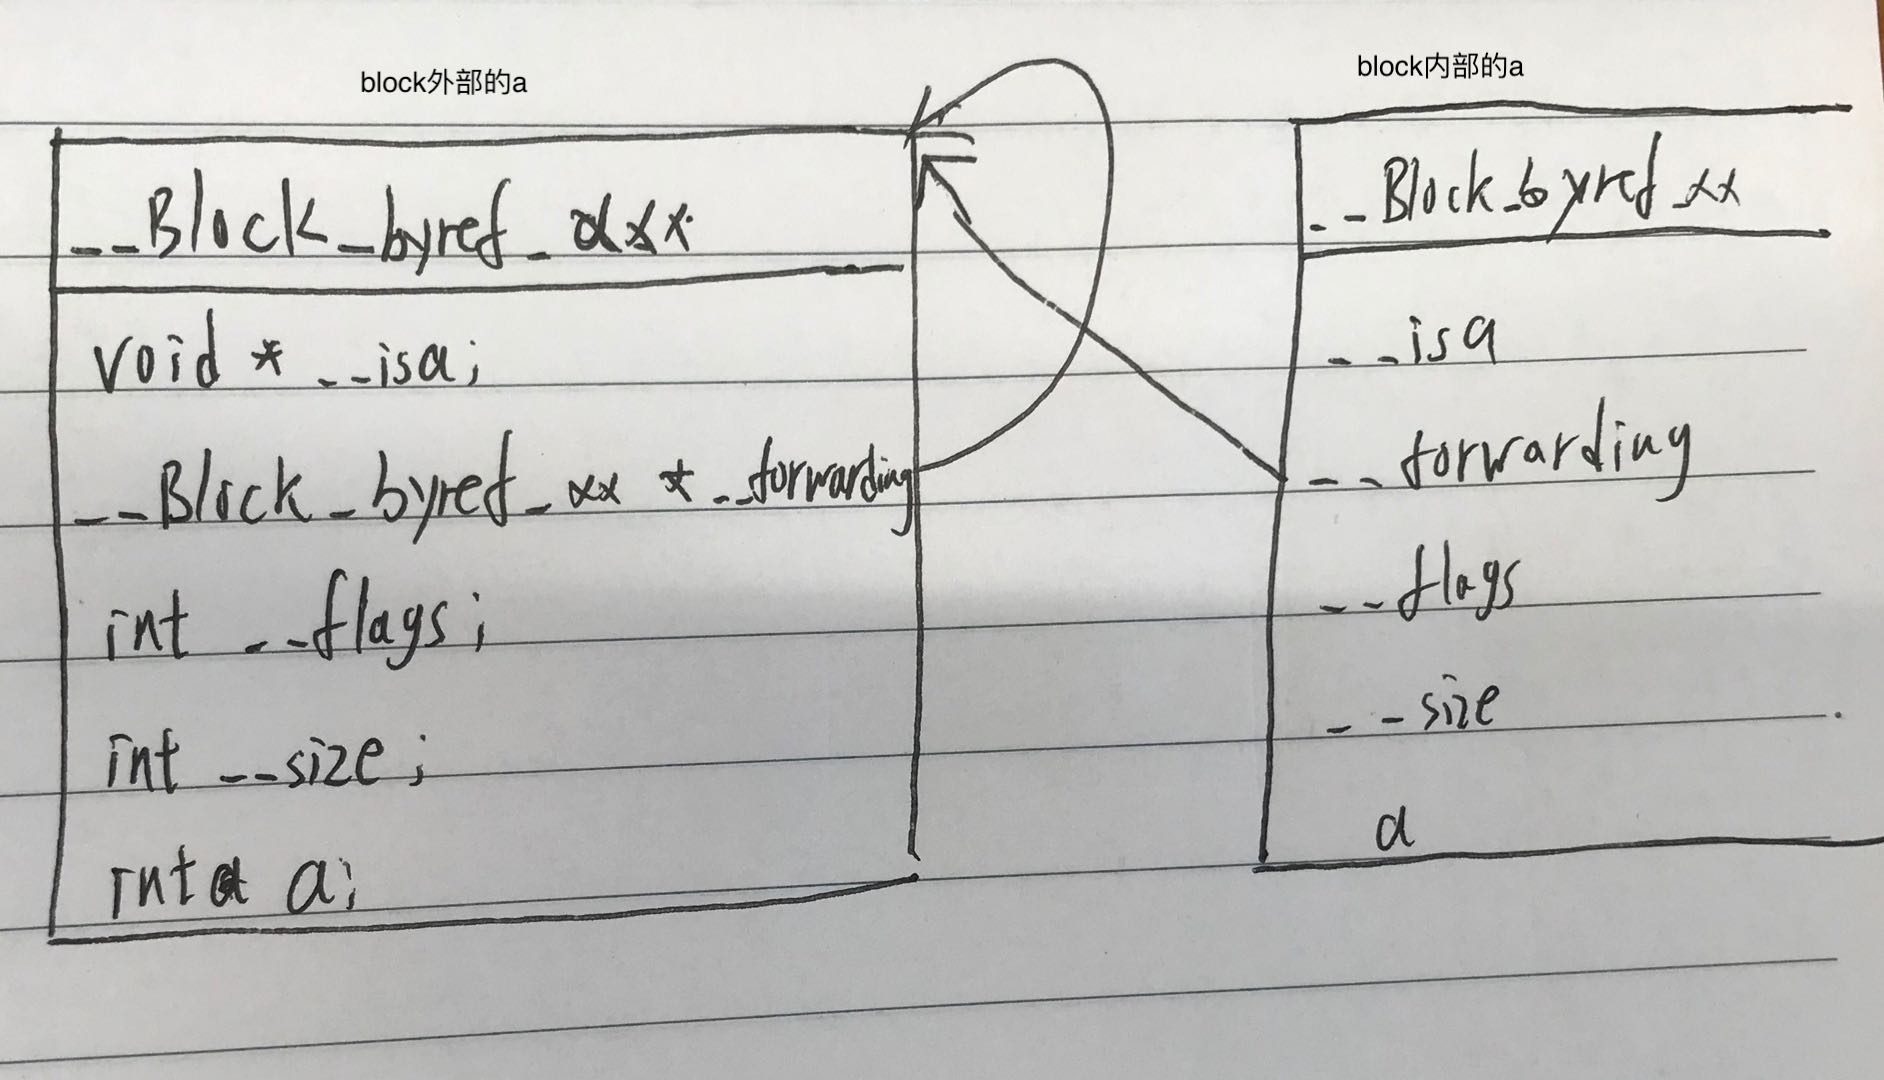 block外部的a
__Block_byref_xxx
void * __isa;
__Block_byref_xx * __forwarding
int __flags;
int __size;
int a;
block内部的a
__Block_byref_xx
__isa
__forwarding
__flags
__size
a